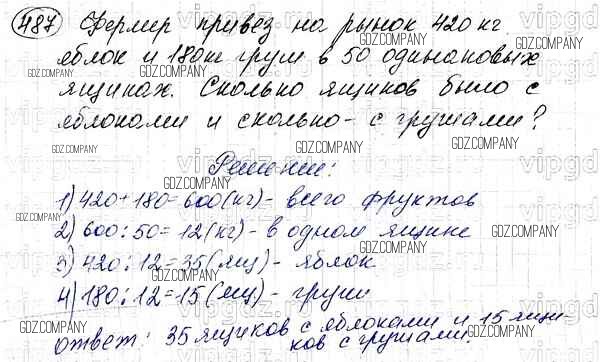 487 Фермер привез на рынок 420 кг
яблок и 180 кг груш в 50 одинаковых
ящиках. Сколько ящиков было с
яблоками и сколько - с грушами?
Решение:
1) 420+180=600(кг)- всего фруктов
2) 600:50=12(кг)- в одном ящике
3) 420:12=35(ящ)- яблок
4) 180:12=15(ящ)- груш
ответ: 35 ящиков с яблоками и 15 ящи-
ков с грушами.
GDZ.COMPANY
vipgdz